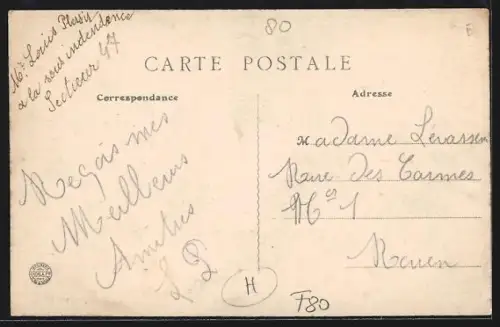 80
E
Mr Louis Plessis
à la sous indendance
Secteur 47
CARTE POSTALE
Correspondance
Adresse
Reçois mes
Meilleurs
Amitiés
L P
Madame Levasseur
Rue des Carmes
No 1
Rouen
H
F80